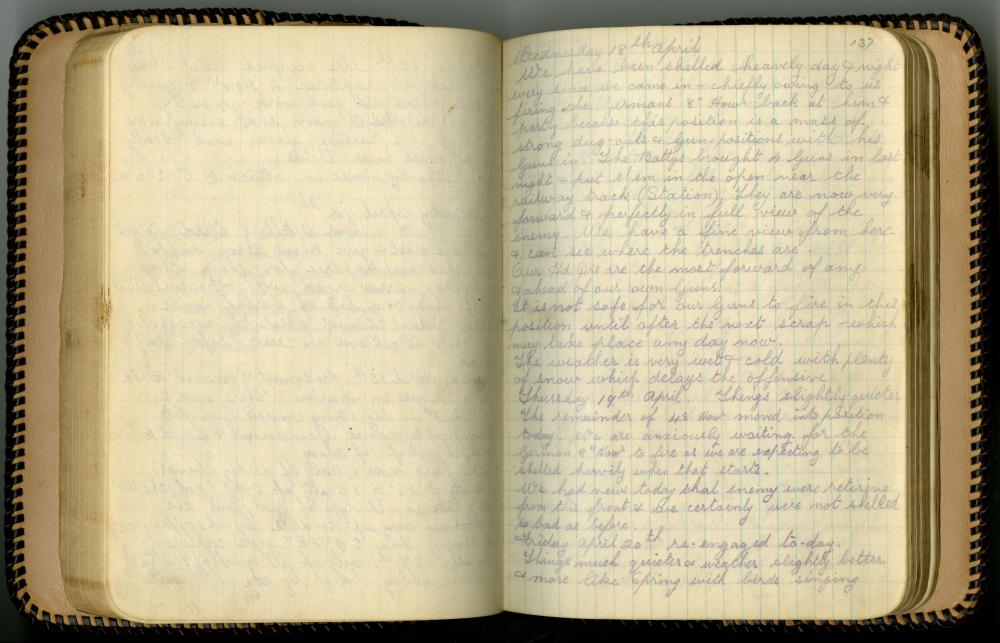 137
Wednesday 18th April
We have been shelled heavely day & night
every since we came in - chiefly owing to us
firing the Germans 8" How back at him &
partly because this position is a mass of
strong dug-outs & Gun positions with his
Guns in. The Battys brought 4 Guns in last
night & put them in the open near the
railway track (Station). They are now very
forward & perfectly in full view of the
enemy. We have a fine view from here
& can see where the trenches are.
Our Hd Qrs are the most forward of any
& ahead of our own Guns.
It is not safe for our Guns to fire in this
position until after the next scrap - which
may take place any day now.
The weather is very wet & cold with plenty
of snow which delays the offensive
Thursday 19th April. Things slightly quieter
The remainder of 4.5 How moved into position
today. We are anxiously waiting for the
German 8" How to fire as we are expecting to be
shelled heavily when that starts.
We had news today that enemy were retiring
from this front & we certainly were not shelled
so bad as before.
Friday April 20th re-engaged to-day.
Things much quieter & weather slightly better
& more like Spring with birds singing